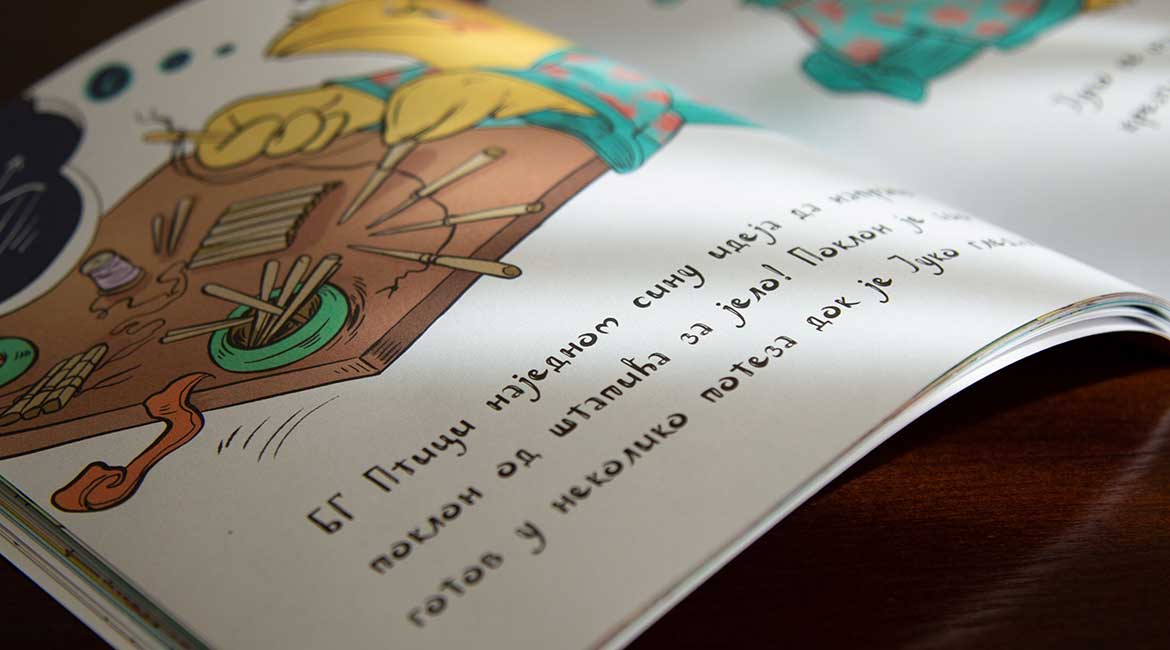 БГ Птици наједном сину идеја да
поклон од штапића за јело! Поклон је
готов у неколико потеза док је Јуко